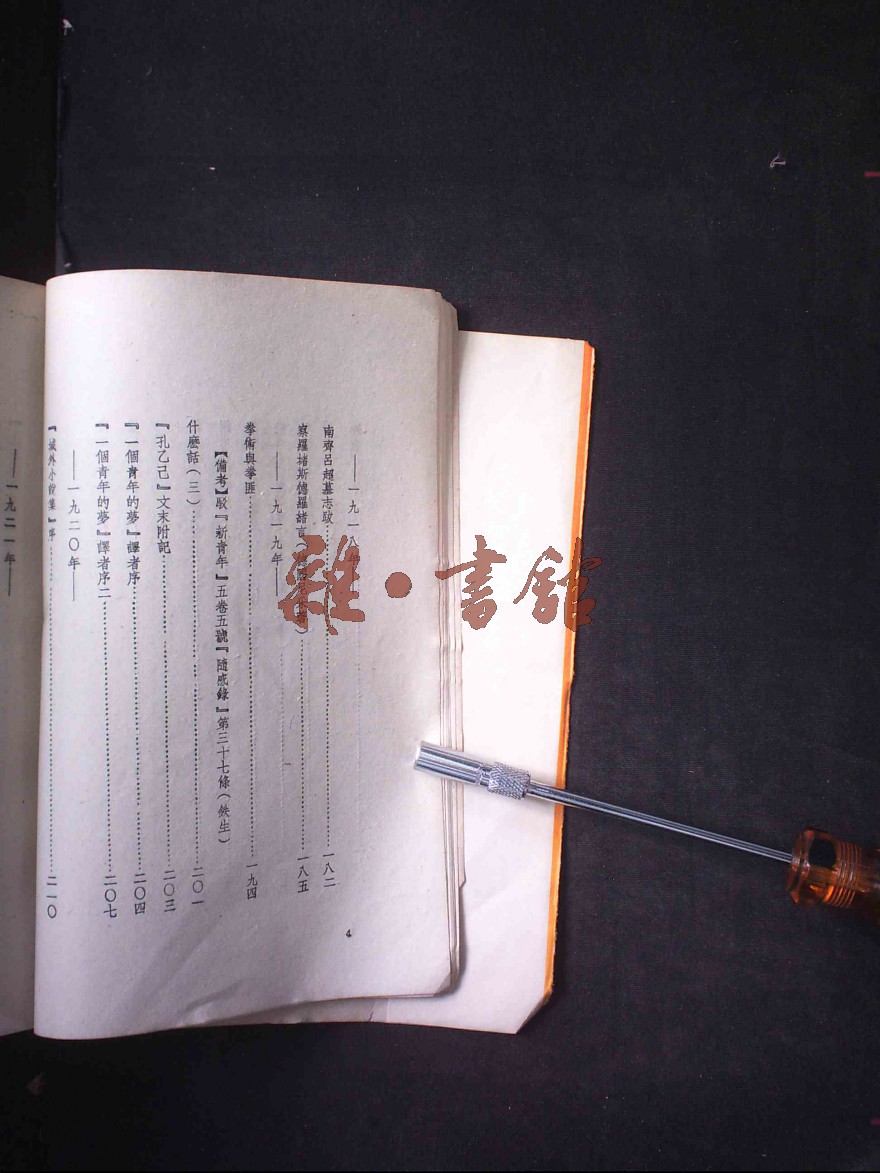 ——一九一八年——
南齊呂超墓志跋……一八二
察羅堵斯德羅緒言……一八五
——一九一九年——
拳術與拳匪……一九四
【備考】駁『新青年』五卷五號『隨感錄』第三十七條（鉄生）
什麼話（三）……二〇一
『孔乙己』文末附記……二〇三
『一個青年的夢』譯者序……二〇四
『一個青年的夢』譯者序二……二〇七
——一九二〇年——
『域外小說集』序……二一〇
4
——一九二一年——
雜·書館